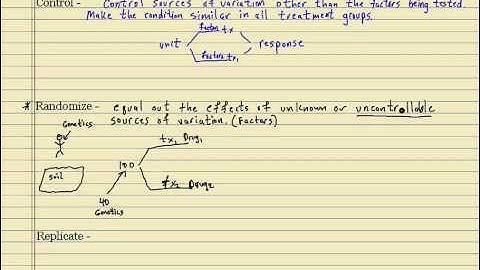 Control - Control sources of variation other than the factors being tested.
Make the condition similar in all treatment groups.
factor tx
unit response
factor tx1
* Randomize - equal out the effects of unknown or uncontrollable
sources of variation. (Factors)
Genetics
tx1 Drug1
100
soil
tx2 Drug2
40
Genetics
Replicate -